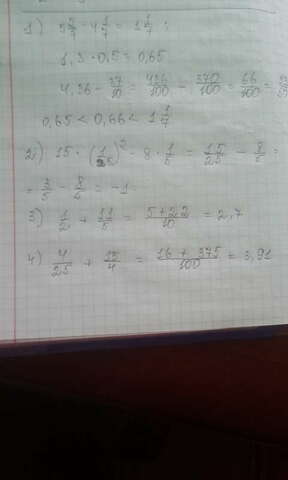 1) 5 5/7 - 4 4/7 = 1 1/7 ;
1,3 · 0,5 = 0,65
4,36 - 37/10 = 436/100 - 370/100 = 66/100 =
0,65 < 0,66 < 1 1/7
2) 15 · (1/5)² - 8 · 1/5 = 15/25 - 8/5 =
= 3/5 - 8/5 = -1
3) 1/2 + 11/5 = 5+22/10 = 2,7
4) 4/25 + 15/4 = 16 + 375/100 = 3,91